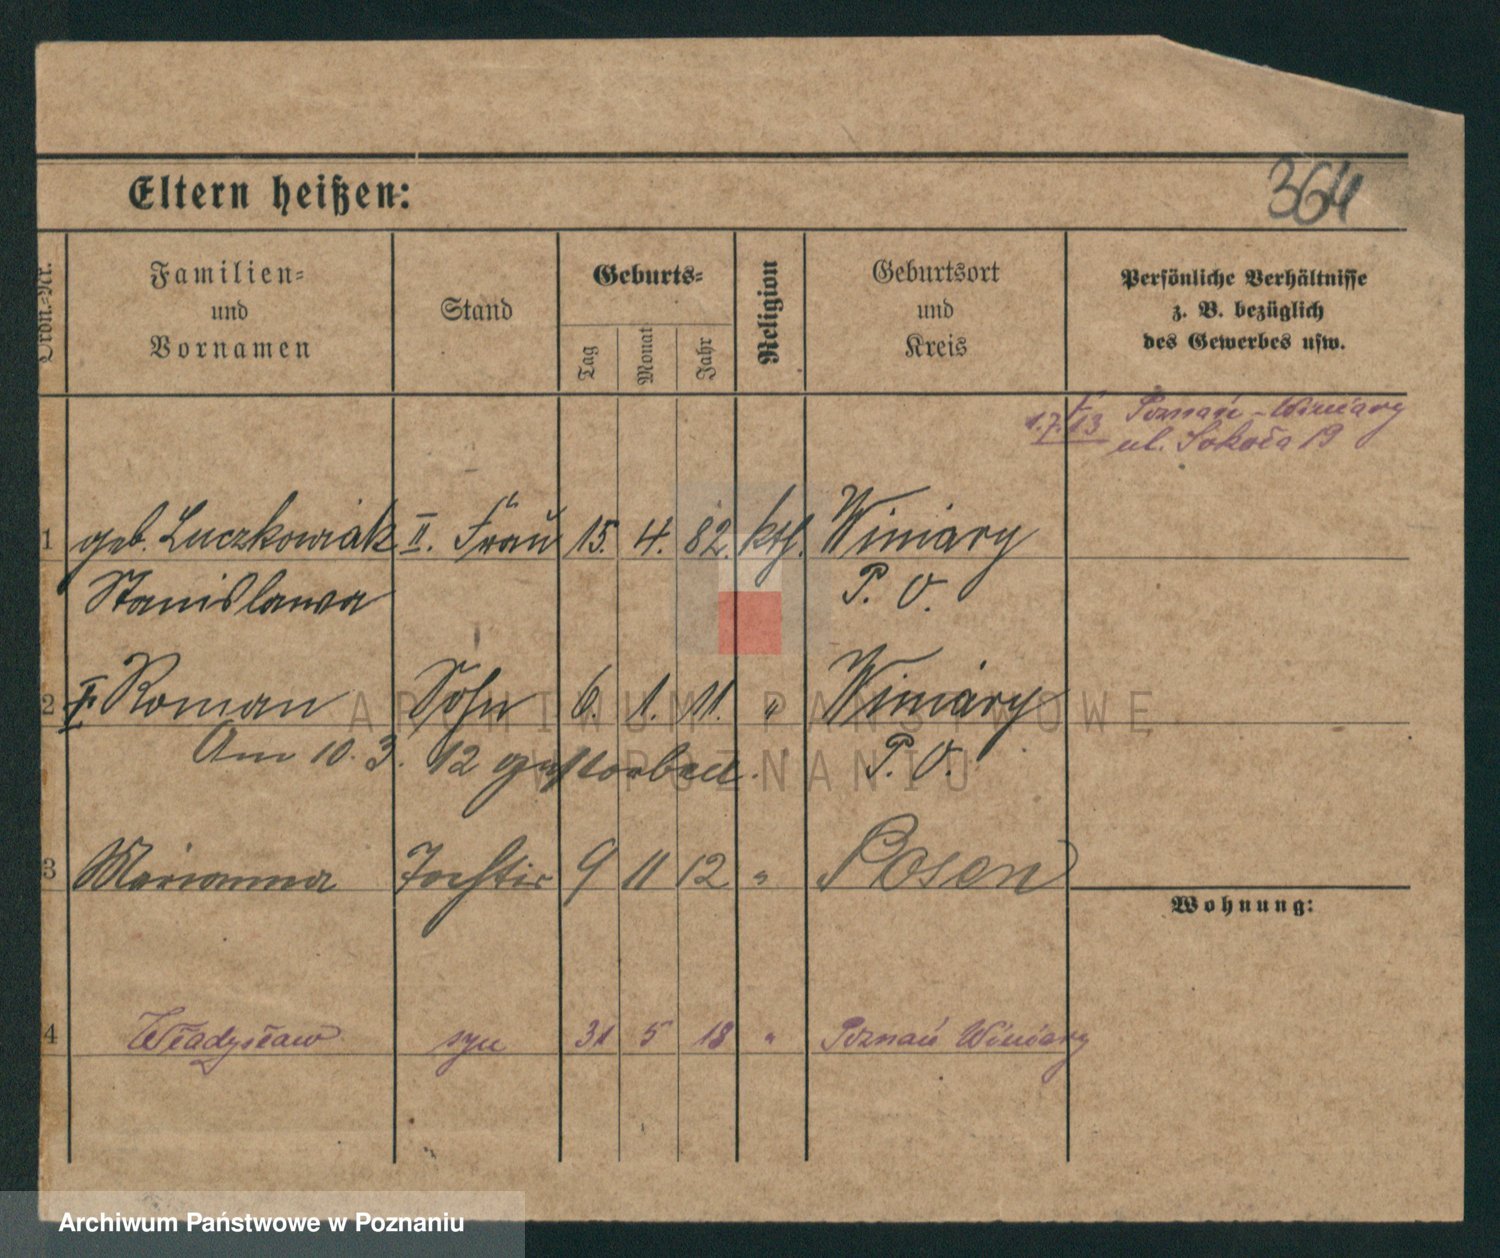 Eltern heißen:
364
Ordn.-Nr.
Familien-
und
Vornamen
Stand
Geburts-
Tag
Monat
Jahr
Religion
Geburtsort
und
Kreis
Persönliche Verhältnisse
z. B. bezüglich
des Gewerbes usw.
Poznań-Winiary
ul. Sokoła 19
1 geb. Luczkowiak II. Frau 15. 4. 82. kth. Winiary
Stanislawa P. O.
2 Roman Sohn 6. 1. 11. " Winiary
Am 10. 3. 12 gestorben. P. O.
3 Marianna Tochter 9 11 12 " Posen
Wohnung:
4 Władysław syn 31 5 18 " Poznań Winiary
ARCHIWUM PAŃSTWOWE
W POZNANIU
Archiwum Państwowe w Poznaniu